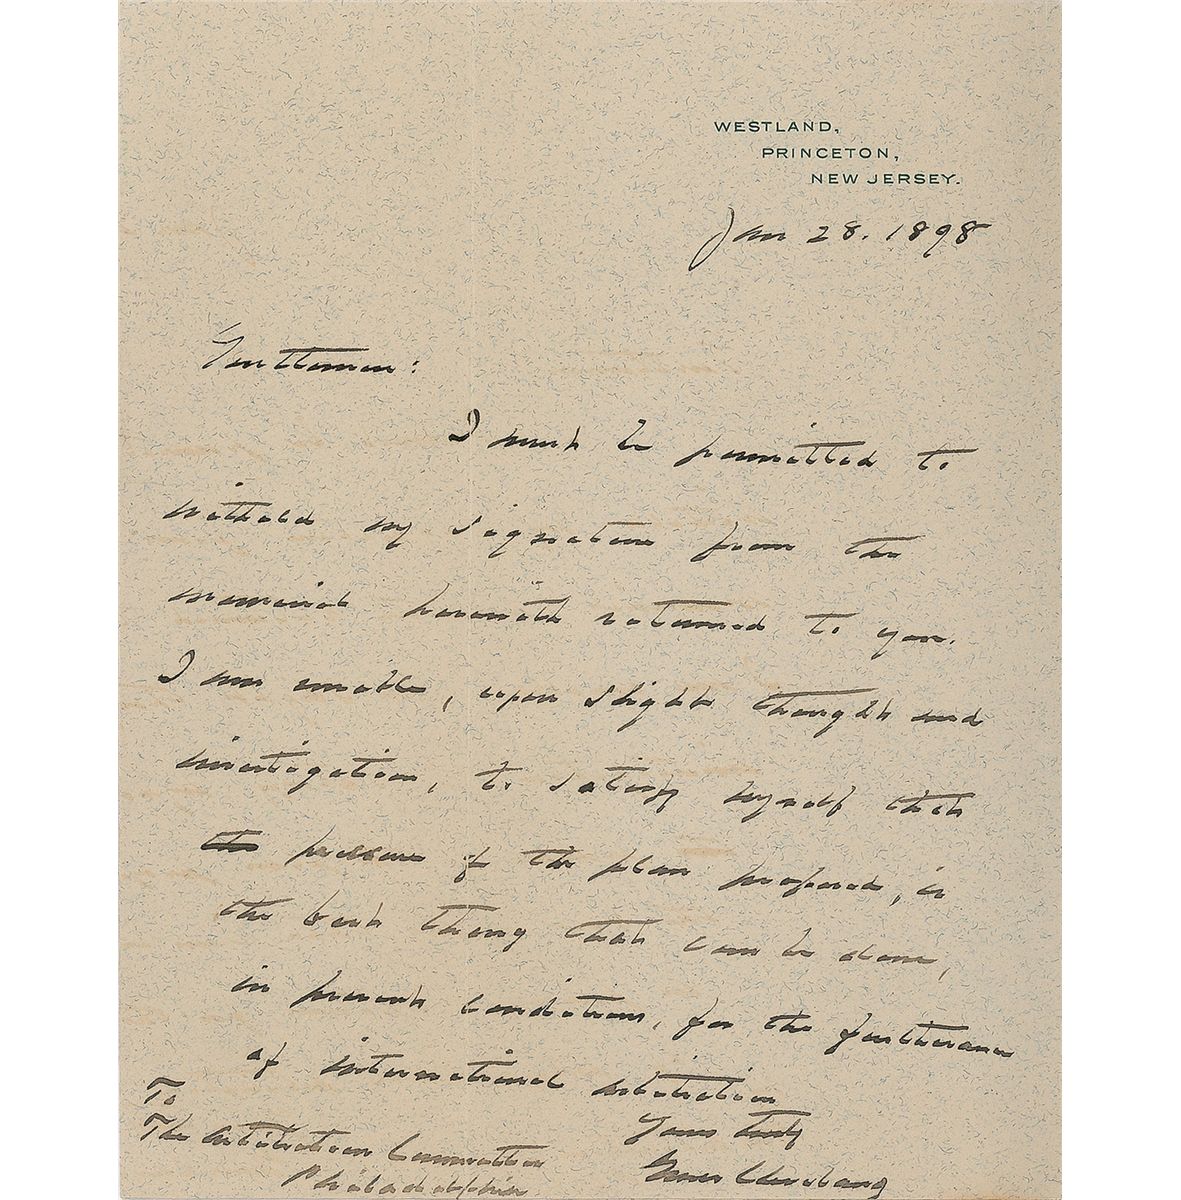 WESTLAND,
PRINCETON,
NEW JERSEY.
Jan 28. 1898
Gentlemen:
I must be permitted to
withold my signature from the
memorial herewith returned to you.
I am unable, upon slight thought and
investigation, to satisfy myself that
the pressure of the plan proposed, is
the best thing that can be done,
in present conditions, for the furtherance
of international arbitration
Yours truly
Grover Cleveland
To
The Arbitration Committee
Philadelphia